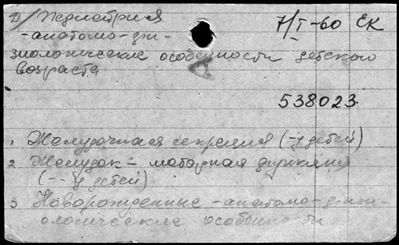 Педиатрия 7/I-60 ЕК
-анатомо-физиологические особенности детского
возраста
538023
1 Желудочная секреция (-у детей)
2 Желудок - моторная функция
(-- у детей)
3 Новорожденные -анатомо-физи-
ологические особенности